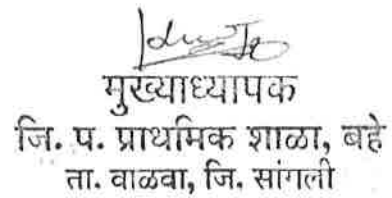 मुख्याध्यापक
जि. प. प्राथमिक शाळा, बहे
ता. वाळवा, जि. सांगली